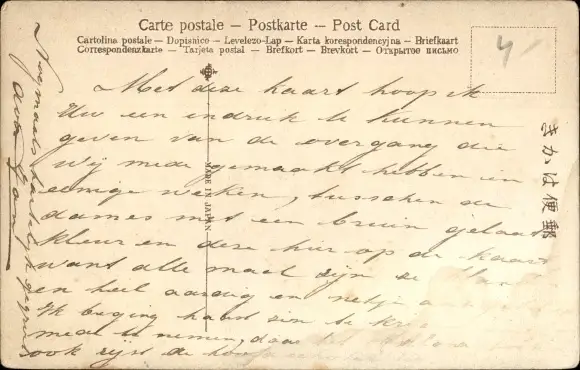 Carte postale – Postkarte – Post Card
Cartolina postale – Dopisnice – Levelezo-Lap – Karta korespondencyjna – Briefkaart
Correspondenzkarte – Tarjeta postal – Brefkort – Brevkort – Открытое письмо
4
Met deze kaart hoop ik
Uw een indruk te kunnen
geven van de overgang die
wij mede gemaakt hebben in
eenige weken, tusschen de
dames met een bruin gelaat
kleur en deze hier op de kaart
want alle maal zijn ze
en heel aardig en netjes
Ik beging haast zin te
mede te nemen, daar
ook zijst de
MADE IN JAPAN
きかは便郵
Nogmaals hartelijk gegroet